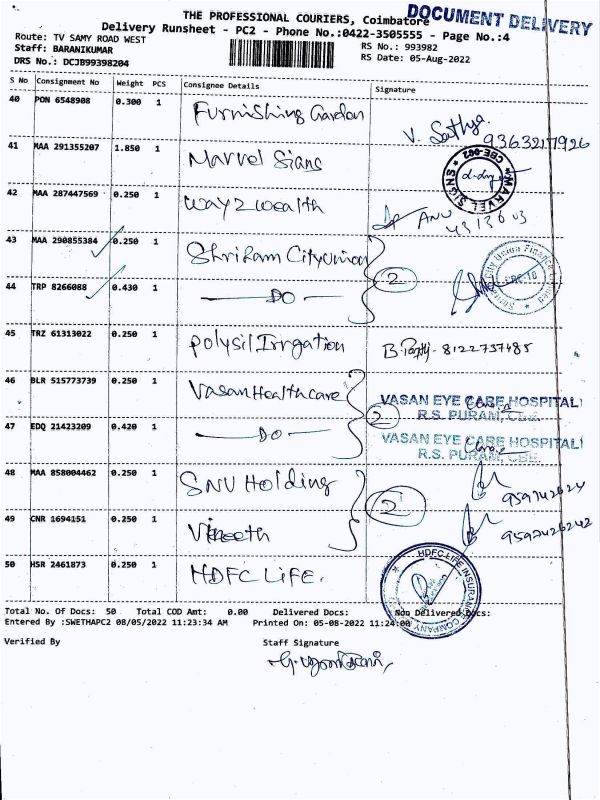 THE PROFESSIONAL COURIERS, Coimbatore
DOCUMENT DELIVERY
Delivery Runsheet - PC2 - Phone No.:0422-3505555 - Page No.:4
Route: TV SAMY ROAD WEST
RS No.: 993982
Staff: BARANIKUMAR
RS Date: 05-Aug-2022
DRS No.: DCJB99398204
S No Consignment No Weight PCS Consignee Details Signature
40 PON 6548908 0.300 1 Furnishing Garden
V. Sathya 9363217926
41 MAA 291355207 1.850 1 Marvel Signs
MARVEL SIGNS CBE-002
42 MAA 287447569 0.250 1 Way2wealth
ANU
43 MAA 290855384 0.250 1 Shriram CityUnion
2
44 TRP 8266088 0.430 1 DO
45 TRZ 61313022 0.250 1 Polysil Irrgation
8122737485
46 BLR 515773739 0.250 1 Vasan Healthcare
VASAN EYE CARE HOSPITAL
R.S. PURAM, CBE.
2
47 EDQ 21423209 0.420 1 DO
VASAN EYE CARE HOSPITAL
R.S. PURAM, CBE.
48 MAA 858004462 0.250 1 SNV Holding
2
49 CNR 1694151 0.250 1 Vineeth
9597426242
50 HSR 2461873 0.250 1 HDFC LIFE.
HDFC LIFE INSURANCE COMPANY
Total No. Of Docs: 50 Total COD Amt: 0.00 Delivered Docs: Non Delivered Docs:
Entered By :SWETHAPC2 08/05/2022 11:23:34 AM Printed On: 05-08-2022 11:24:00
Verified By Staff Signature